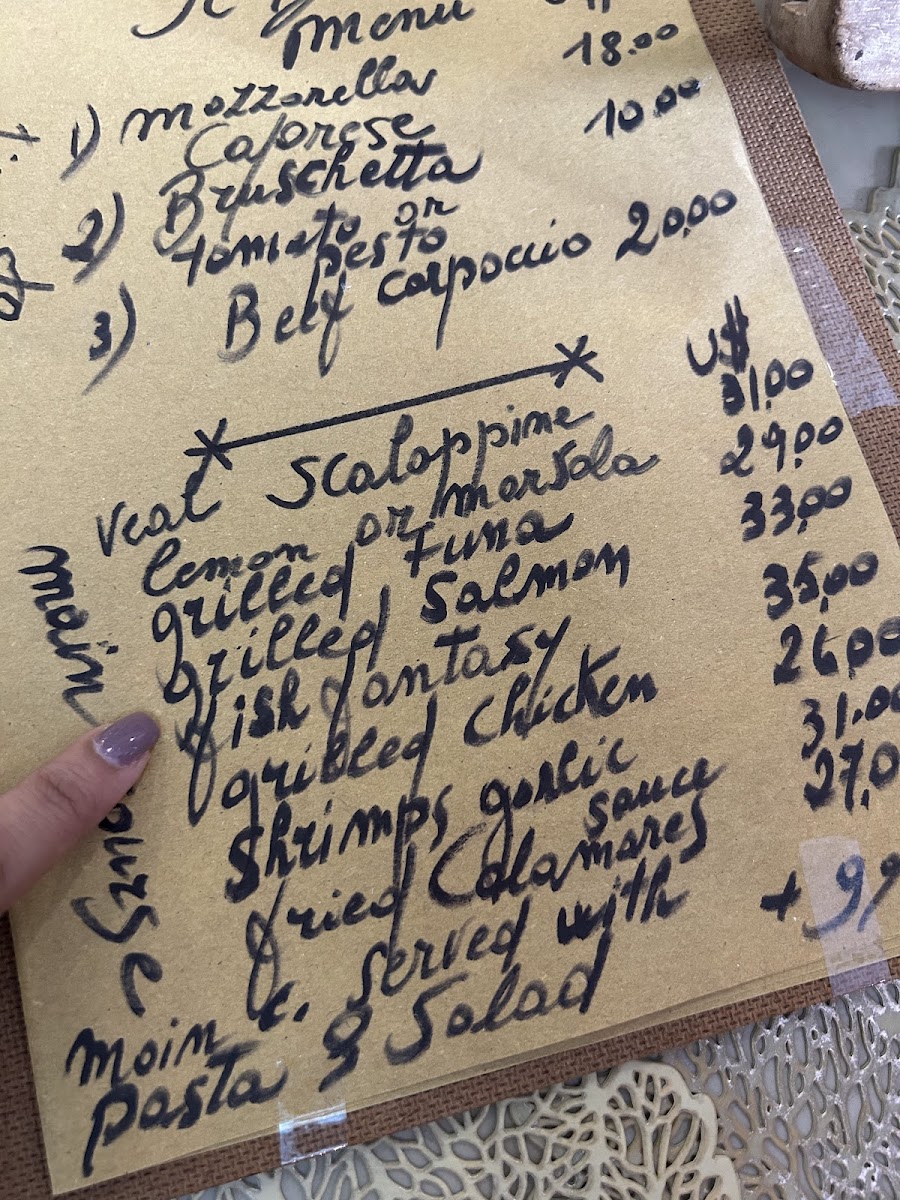 Menu
1) Mozzorella 18.00
Caprese
2) Bruschetta 10.00
tomato or
pesto
3) Beef carpaccio 20,00
U$
Veal Scaloppine 31,00
lemon or marsala
grilled Tuna 29,00
grilled Salmon 33,00
fish fantasy 35,00
grilled Chicken 26,00
Shrimps garlic 31.00
sauce
fried Calamares 27,0
Main c. Served with + 9,9
pasta & Salad
main